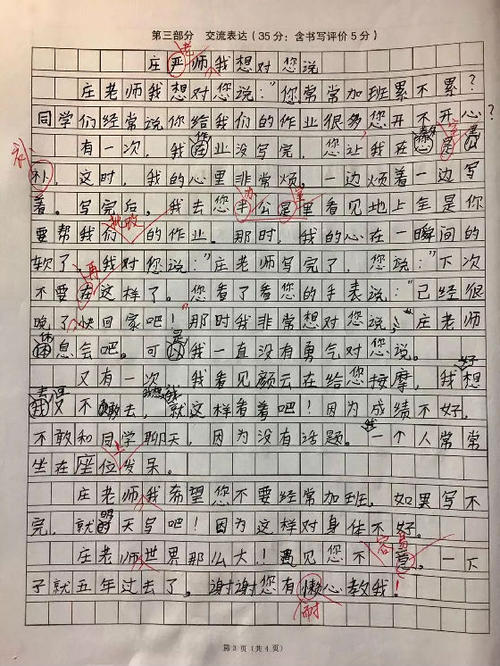 第三部分 交流表达（35分：含书写评价5分）
庄严师我想对您说
庄老师我想对您说："您常常加班累不累？
同学们经常说你给我们的作业很多您开不开心？
有一次，我作业没写完，您让我在
补，这时，我的心里非常烦。一边烦着一边写
着。写完后，我去您办公室里看见地上全是你
要帮我们批改的作业。那时，我的心在一瞬间的
软了，我对您说："庄老师写完了，您说："下次
不要在这样了。您看了看您的手表说："已经很
晚了快回家吧！那时我非常想对您说：庄老师
休息会吧。可是我一直没有勇气对您说。
又有一次，我看见颜云在给您按摩，我好想
去但又不敢去，就这样看着吧！因为成绩不好，
不敢和同学聊天，因为没有话题。一个人常常
坐在座位发呆。
庄老师我希望您不要经常加班，如果写不
完，就明天写吧！因为这样对身体不好。
庄老师世界那么大！遇见您不容易。一下
子就五年过去了。谢谢您有懒心教我！
耐
第3页（共4页）